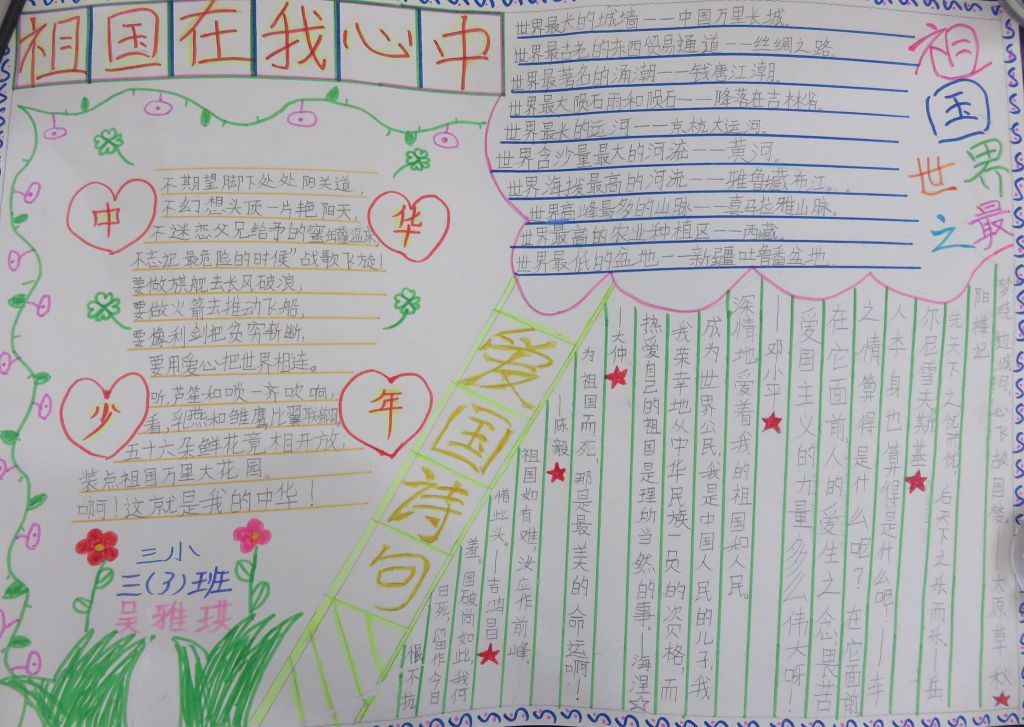 祖国在我心中
不期望脚下处处阳关道,
不幻想头顶一片艳阳天,
不迷恋父兄给予的蜜虫罐温床,
不忘记"最危险的时候"战歌飞旋!
要做旗舰去长风破浪,
要做火箭去推动飞船,
要像利剑把贫穷斩断,
要用爱心把世界相连。
听,芦笙和唢一齐吹响,
看,乳燕和雏鹰比翼联翩,
五十六朵鲜花竞相开放,
装点祖国万里大花园。
啊!这就是我的中华!
中
华
少
年
三小
三(3)班
吴雅琪
世界最大的城墙——中国万里长城.
世界最古老的东西贸易通道——丝绸之路.
世界最著名的涌潮——钱塘江潮.
世界最大陨石雨和陨石——降落在吉林省.
世界最长的运河——京杭大运河.
世界含沙量最大的河流——黄河.
世界海拔最高的河流——雅鲁藏布江..
世界高峰最多的山脉——喜马拉雅山脉.
世界最高的农业种植区——西藏.
世界最低的盆地——新疆吐鲁番盆地.
祖国世界之最
爱国诗句
恨不抗
日死,留作今日
羞。国破尚如此,我何
惜此头。——吉鸿昌
祖国如有难,汝应作前峰。
——陈毅
为祖国而死,那是最美的命运啊!
——大仲
热爱自己的祖国是理所当然的事。——海涅
我荣幸地从中华民族一员的资格,而
成为世界公民。我是中国人民的儿子,我
深情地爱着我的祖国和人民。
——邓小平
爱国主义的力量多么伟大呀!
在它面前,人的爱生之念,畏苦
之情,算得是什么呢?在它面前
人本身也算得是什么呢!——车
尔尼雪夫斯基
先天下之忧而忧,后天下之乐而乐。——岳
阳楼记
梦绕边城月,心飞故国楼。太原草秋